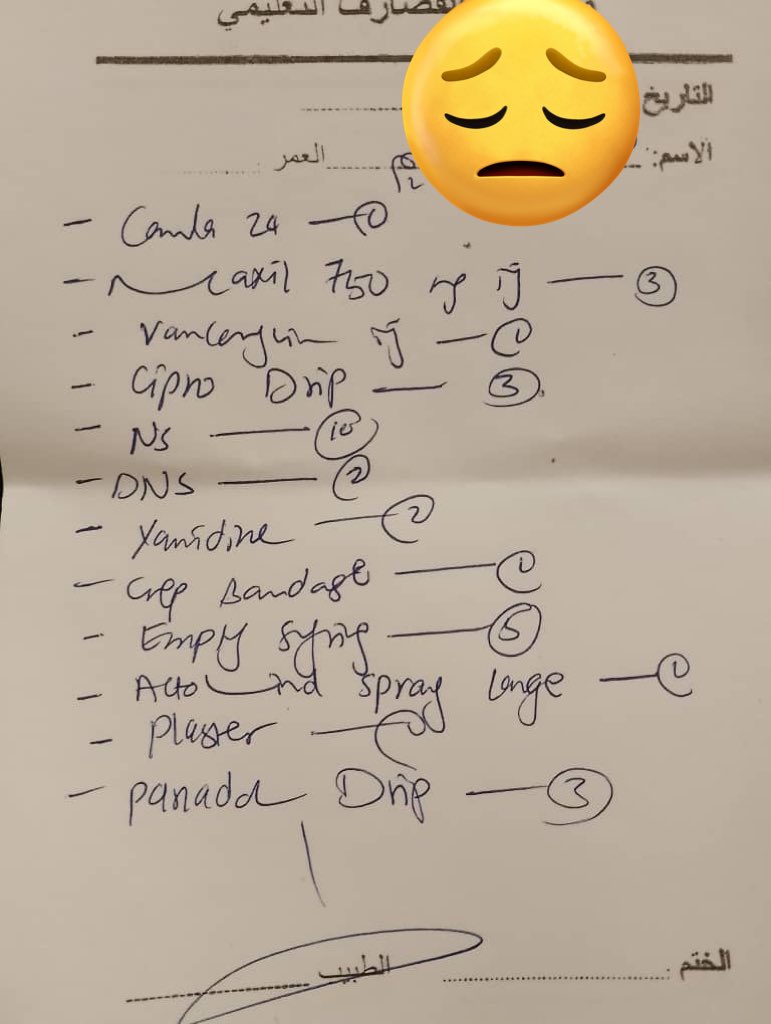 القضارف التعليمي
التاريخ
الاسم: العمر
- Canula 24 — 1
- 750 mg inj — 3
- Vancomycin inj — 1
- Cipro Drip — 3
- NS — 10
- DNS — 2
- Xanidine — 2
- Crep Bandage — 1
- Empty Syring — 5
- spray large — 1
- Plaster — 1
- panadol Drip — 3
الطبيب الختم :